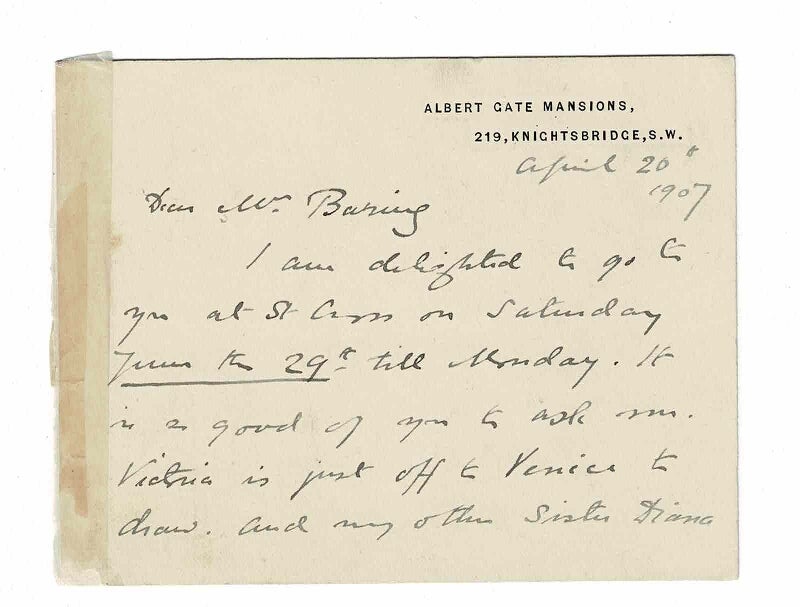 ALBERT GATE MANSIONS,
219, KNIGHTSBRIDGE, S.W.
April 20th
1907
Dear Mr. Baring
I am delighted to go to
you at St Cross on Saturday
June the 29th till Monday. It
is so good of you to ask me.
Victoria is just off to Venice to
draw. and my other Sister Diana